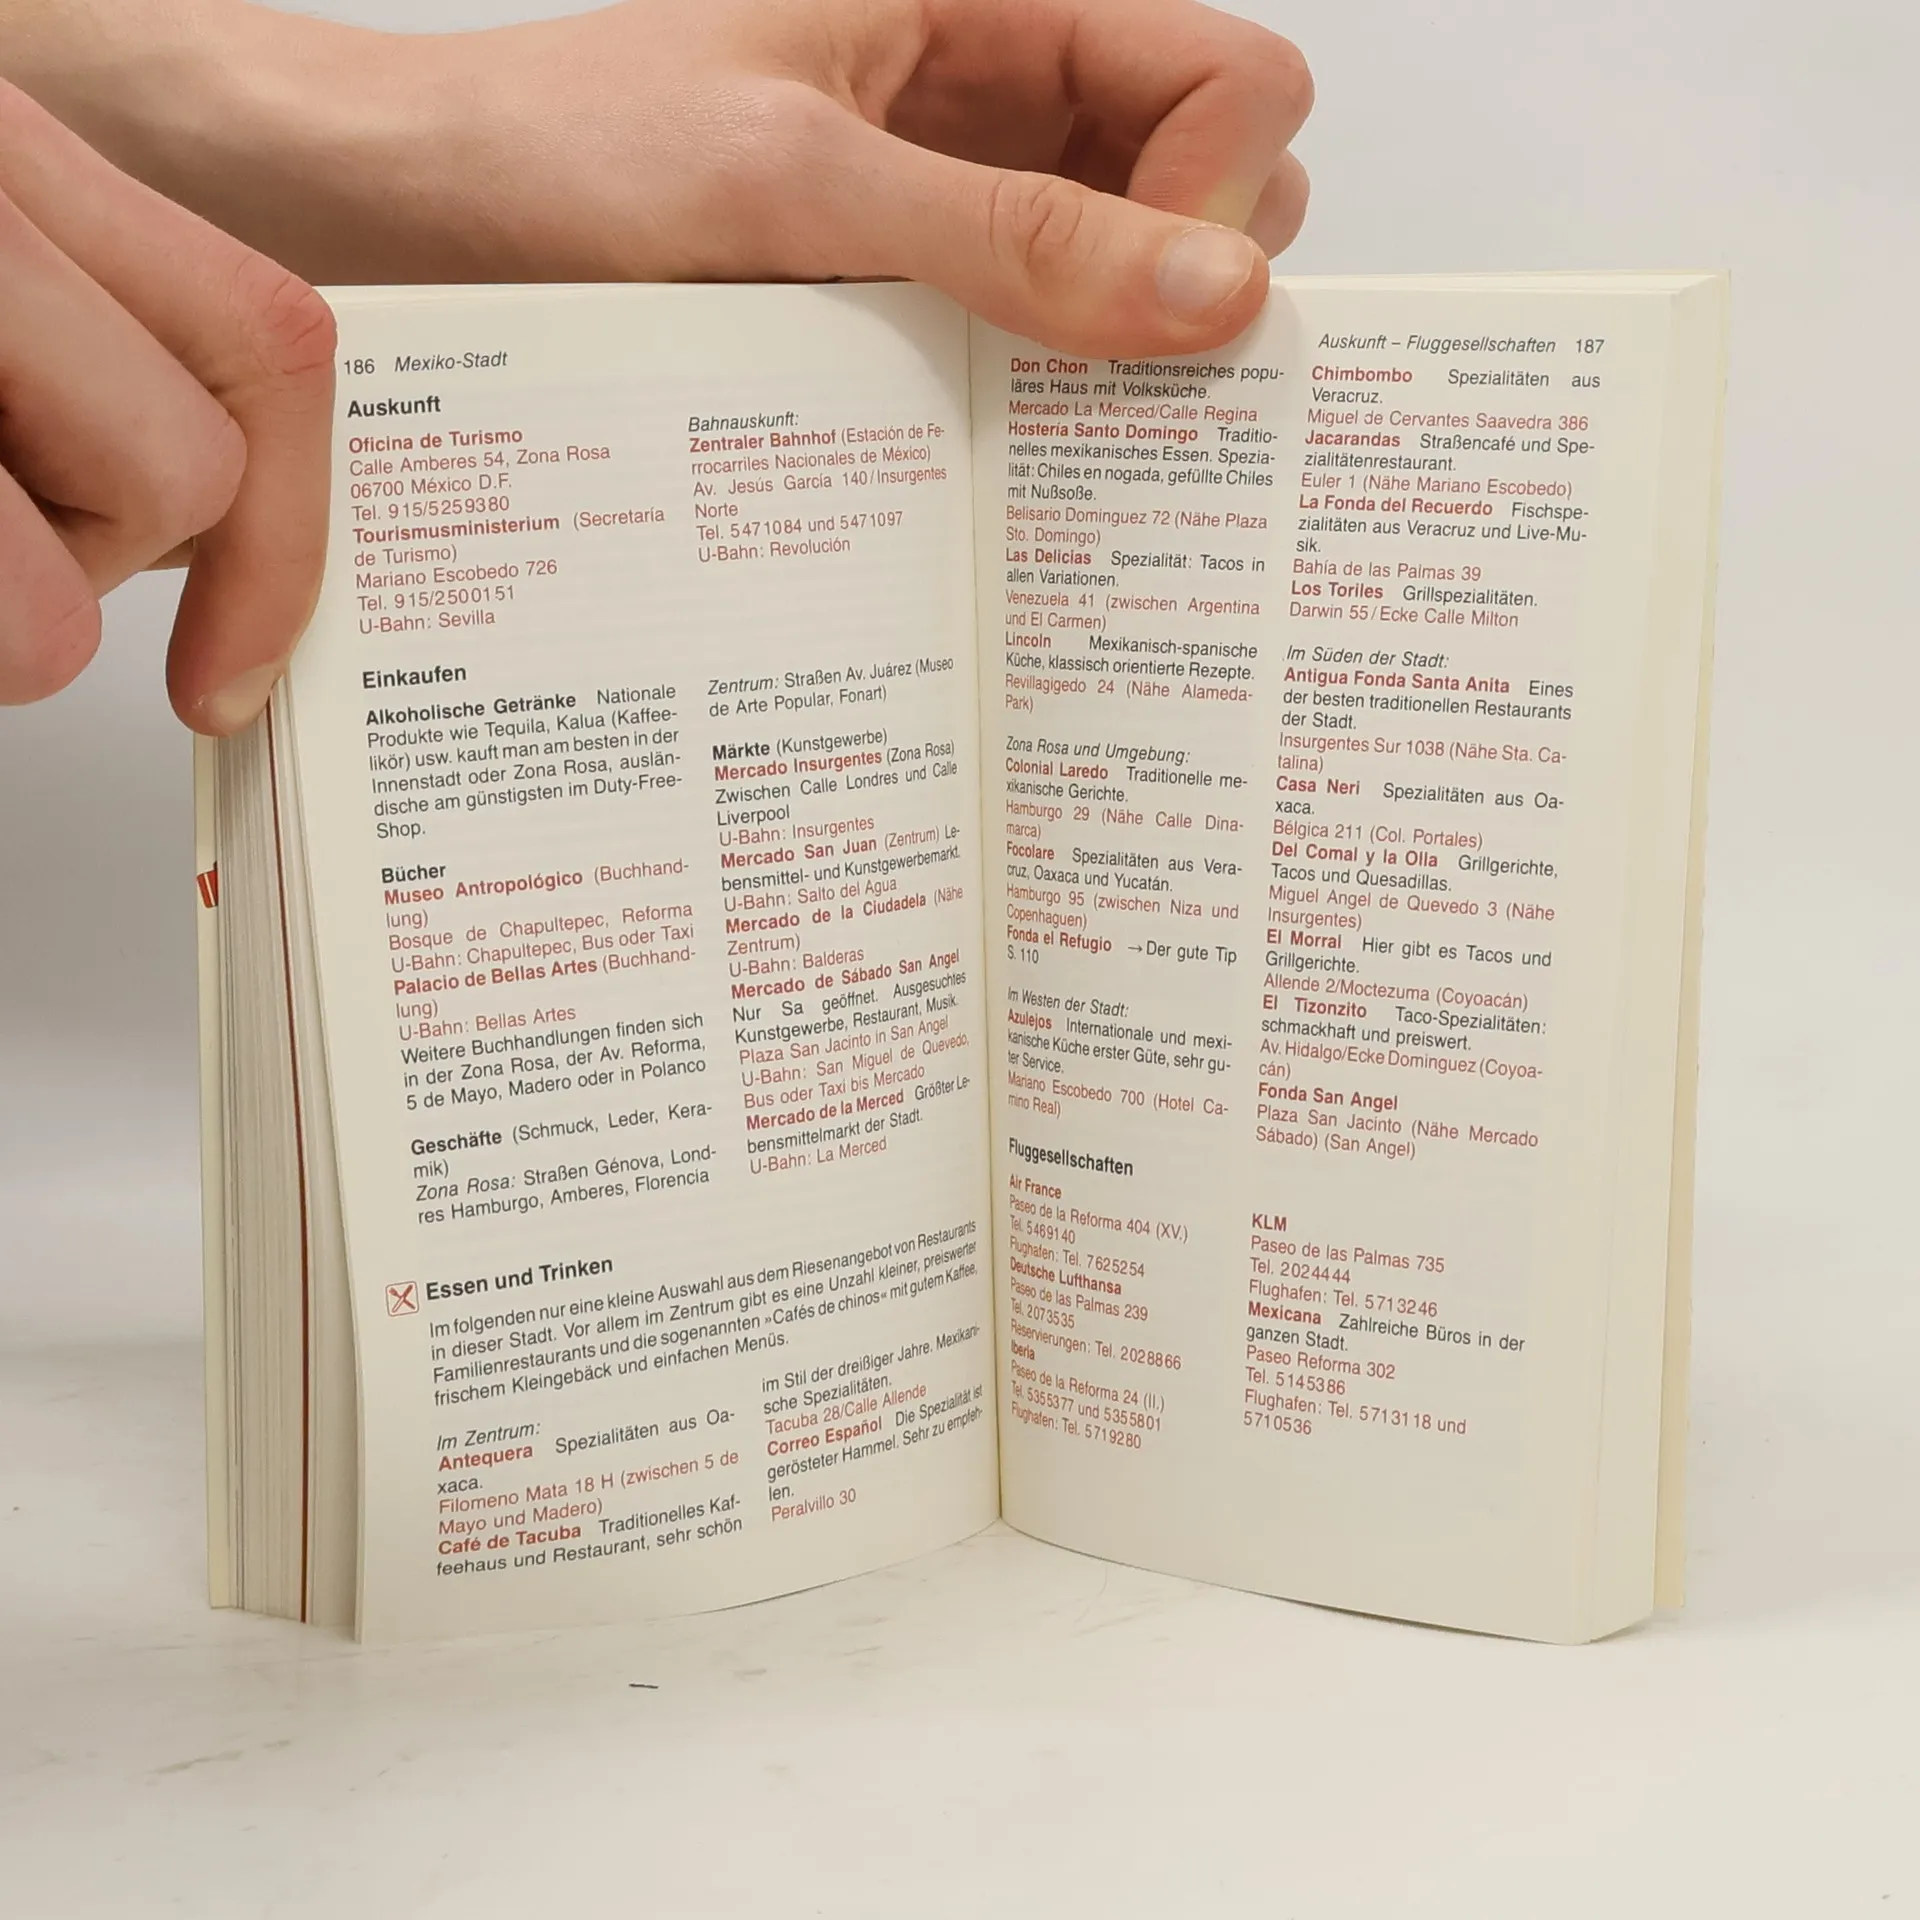 186 Mexiko-Stadt
Auskunft
Oficina de Turismo
Calle Amberes 54, Zona Rosa
06700 México D.F.
Tel. 915/5259380
Tourismusministerium (Secretaría
de Turismo)
Mariano Escobedo 726
Tel. 915/2500151
U-Bahn: Sevilla
Bahnauskunft:
Zentraler Bahnhof (Estación de Fe-
rrocarriles Nacionales de México)
Av. Jesús García 140/Insurgentes
Norte
Tel. 5471084 und 5471097
U-Bahn: Revolución
Einkaufen
Alkoholische Getränke Nationale
Produkte wie Tequila, Kalua (Kaffee-
likör) usw. kauft man am besten in der
Innenstadt oder Zona Rosa, auslän-
dische am günstigsten im Duty-Free-
Shop.
Bücher
Museo Antropológico (Buchhand-
lung)
Bosque de Chapultepec, Reforma
U-Bahn: Chapultepec, Bus oder Taxi
Palacio de Bellas Artes (Buchhand-
lung)
U-Bahn: Bellas Artes
Weitere Buchhandlungen finden sich
in der Zona Rosa, der Av. Reforma,
5 de Mayo, Madero oder in Polanco
Geschäfte (Schmuck, Leder, Kera-
mik)
Zona Rosa: Straßen Génova, Lond-
res Hamburgo, Amberes, Florencia
Zentrum: Straßen Av. Juárez (Museo
de Arte Popular, Fonart)
Märkte (Kunstgewerbe)
Mercado Insurgentes (Zona Rosa)
Zwischen Calle Londres und Calle
Liverpool
U-Bahn: Insurgentes
Mercado San Juan (Zentrum) Le-
bensmittel- und Kunstgewerbemarkt.
U-Bahn: Salto del Agua
Mercado de la Ciudadela (Nähe
Zentrum)
U-Bahn: Balderas
Mercado de Sábado San Angel
Nur Sa geöffnet. Ausgesuchtes
Kunstgewerbe, Restaurant, Musik.
Plaza San Jacinto in San Angel
U-Bahn: San Miguel de Quevedo,
Bus oder Taxi bis Mercado
Mercado de la Merced Größter Le-
bensmittelmarkt der Stadt.
U-Bahn: La Merced
Essen und Trinken
Im folgenden nur eine kleine Auswahl aus dem Riesenangebot von Restaurants
in dieser Stadt. Vor allem im Zentrum gibt es eine Unzahl kleiner, preiswerter
Familienrestaurants und die sogenannten »Cafés de chinos« mit gutem Kaffee,
frischem Kleingebäck und einfachen Menüs.
Im Zentrum:
Antequera Spezialitäten aus Oa-
xaca.
Filomeno Mata 18 H (zwischen 5 de
Mayo und Madero)
Café de Tacuba Traditionelles Kaf-
feehaus und Restaurant, sehr schön
im Stil der dreißiger Jahre. Mexikani-
sche Spezialitäten.
Tacuba 28/Calle Allende
Correo Español Die Spezialität ist
gerösteter Hammel. Sehr zu empfeh-
len.
Peralvillo 30
Auskunft – Fluggesellschaften 187
Don Chon Traditionsreiches popu-
läres Haus mit Volksküche.
Mercado La Merced/Calle Regina
Hostería Santo Domingo Traditio-
nelles mexikanisches Essen. Spezia-
lität: Chiles en nogada, gefüllte Chiles
mit Nußsoße.
Belisario Dominguez 72 (Nähe Plaza
Sto. Domingo)
Las Delicias Spezialität: Tacos in
allen Variationen.
Venezuela 41 (zwischen Argentina
und El Carmen)
Lincoln Mexikanisch-spanische
Küche, klassisch orientierte Rezepte.
Revillagigedo 24 (Nähe Alameda-
Park)
Zona Rosa und Umgebung:
Colonial Laredo Traditionelle me-
xikanische Gerichte.
Hamburgo 29 (Nähe Calle Dina-
marca)
Focolare Spezialitäten aus Vera-
cruz, Oaxaca und Yucatán.
Hamburgo 95 (zwischen Niza und
Copenhaguen)
Fonda el Refugio →Der gute Tip
S. 110
Im Westen der Stadt:
Azulejos Internationale und mexi-
kanische Küche erster Güte, sehr gu-
ter Service.
Mariano Escobedo 700 (Hotel Ca-
mino Real)
Chimbombo Spezialitäten aus
Veracruz.
Miguel de Cervantes Saavedra 386
Jacarandas Straßencafé und Spe-
zialitätenrestaurant.
Euler 1 (Nähe Mariano Escobedo)
La Fonda del Recuerdo Fischspe-
zialitäten aus Veracruz und Live-Mu-
sik.
Bahía de las Palmas 39
Los Toriles Grillspezialitäten.
Darwin 55/Ecke Calle Milton
Im Süden der Stadt:
Antigua Fonda Santa Anita Eines
der besten traditionellen Restaurants
der Stadt.
Insurgentes Sur 1038 (Nähe Sta. Ca-
talina)
Casa Neri Spezialitäten aus Oa-
xaca.
Bélgica 211 (Col. Portales)
Del Comal y la Olla Grillgerichte,
Tacos und Quesadillas.
Miguel Angel de Quevedo 3 (Nähe
Insurgentes)
El Morral Hier gibt es Tacos und
Grillgerichte.
Allende 2/Moctezuma (Coyoacán)
El Tizonzito Taco-Spezialitäten:
schmackhaft und preiswert.
Av. Hidalgo/Ecke Dominguez (Coyoa-
cán)
Fonda San Angel
Plaza San Jacinto (Nähe Mercado
Sábado) (San Angel)
Fluggesellschaften
Air France
Paseo de la Reforma 404 (XV.)
Tel. 5469140
Flughafen: Tel. 7625254
Deutsche Lufthansa
Paseo de las Palmas 239
Tel. 2073535
Reservierungen: Tel. 2028866
Iberia
Paseo de la Reforma 24 (II.)
Tel. 5355377 und 5355801
Flughafen: Tel. 5719280
KLM
Paseo de las Palmas 735
Tel. 2024444
Flughafen: Tel. 5713246
Mexicana Zahlreiche Büros in der
ganzen Stadt.
Paseo Reforma 302
Tel. 5145386
Flughafen: Tel. 5713118 und
5710536